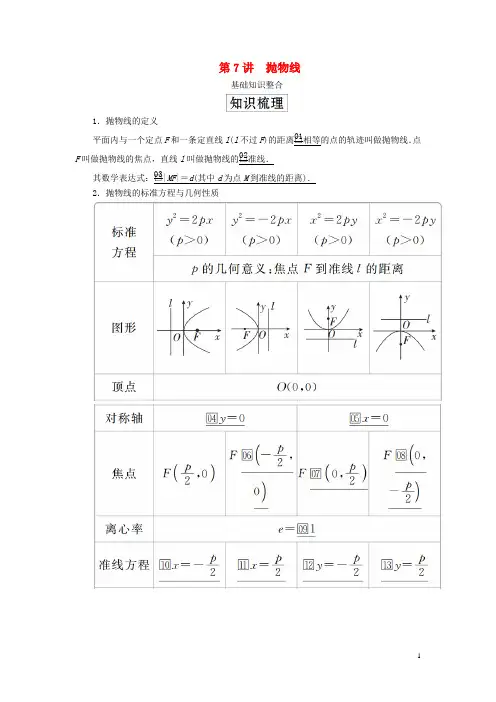 第7讲 抛物线
基础知识整合
知识梳理
1．抛物线的定义
平面内与一个定点F和一条定直线l(l不过F)的距离01相等的点的轨迹叫做抛物线．点
F叫做抛物线的焦点，直线l叫做抛物线的02准线．
其数学表达式：03|MF|＝d(其中d为点M到准线的距离)．
2．抛物线的标准方程与几何性质
标准方程 y²＝2px (p＞0) y²＝－2px (p＞0) x²＝2py (p＞0) x²＝－2py (p＞0)
p的几何意义：焦点F到准线l的距离
图形 l y O F x y l F O x y F O l x y l O F x
顶点 O(0,0)
对称轴 04 y＝0 05 x＝0
焦点 F(p/2,0) F 06(－p/2,0) F 07(0,p/2) F 08(0,－p/2)
离心率 e＝09 1
准线方程 10 x＝－p/2 11 x＝p/2 12 y＝－p/2 13 y＝p/2
1